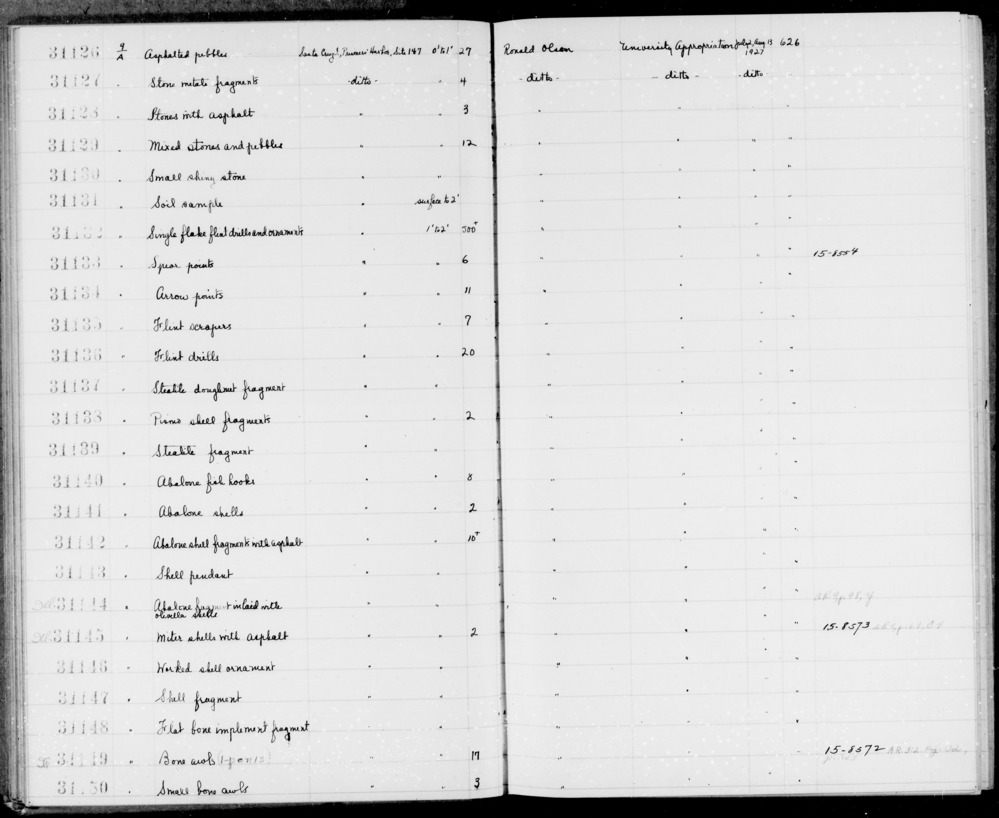 31126 9/A Asphalted pebbles Santa Cruz I, Prisoners Harbor, Site 147 0' to 1' 27 Ronald Olson University Appropriation July 1, Aug 13 1927 626
31127 . Stone metate fragments -ditto- " 4 -ditto- -ditto- -ditto-
31128 . Stones with asphalt " " 3 " " " "
31129 . Mixed stones and pebbles " " 12 " " " "
31130 . Small shiny stone " " " " " "
31131 . Soil sample " surface to 2' " " " "
31132 . Single flake flint drills and ornaments " 1' to 2' 500+ " " " "
31133 . Spear points " " 6 " " " " 15-8554
31134 . Arrow points " " 11 " " " "
31135 . Flint scrapers " " 7 " " " "
31136 . Flint drills " " 20 " " " "
31137 . Steatite doughnut fragment " " " " " "
31138 . Pismo shell fragments " " 2 " " " "
31139 . Steatite fragment " " " " " "
31140 . Abalone fish hooks " " 8 " " " "
31141 . Abalone shells " " 2 " " " "
31142 . Abalone shell fragments with asphalt " " 10+ " " " "
31143 . Shell pendant " " " " " "
31144 . Abalone fragment inlaid with
olivella shells " " " " " "
31145 . Miter shells with asphalt " " 2 " " " " 15-8573
31146 . Worked shell ornament " " " " " "
31147 . Shell fragment " " " " " "
31148 . Flat bone implement fragment " " " " " "
31149 " Bone awls " " 17 " " " " 15-8572
31150 . Small bone awls " " 3 " " " "